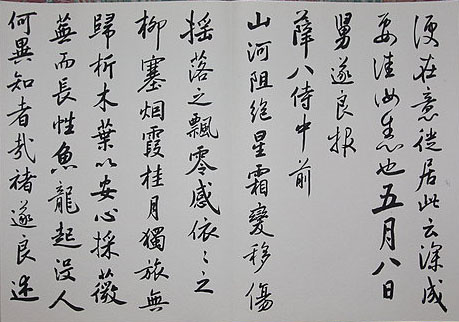 在意從居此云深成
也五月八日
舅遂良報
薛八侍中前
山河阻絕星霜變移傷
搖落之飄零感依〻之
柳塞烟霞桂月獨旅無
歸折木葉以安心採薇
蕪而長性魚龍起沒人
何異知者哉褚遂良述